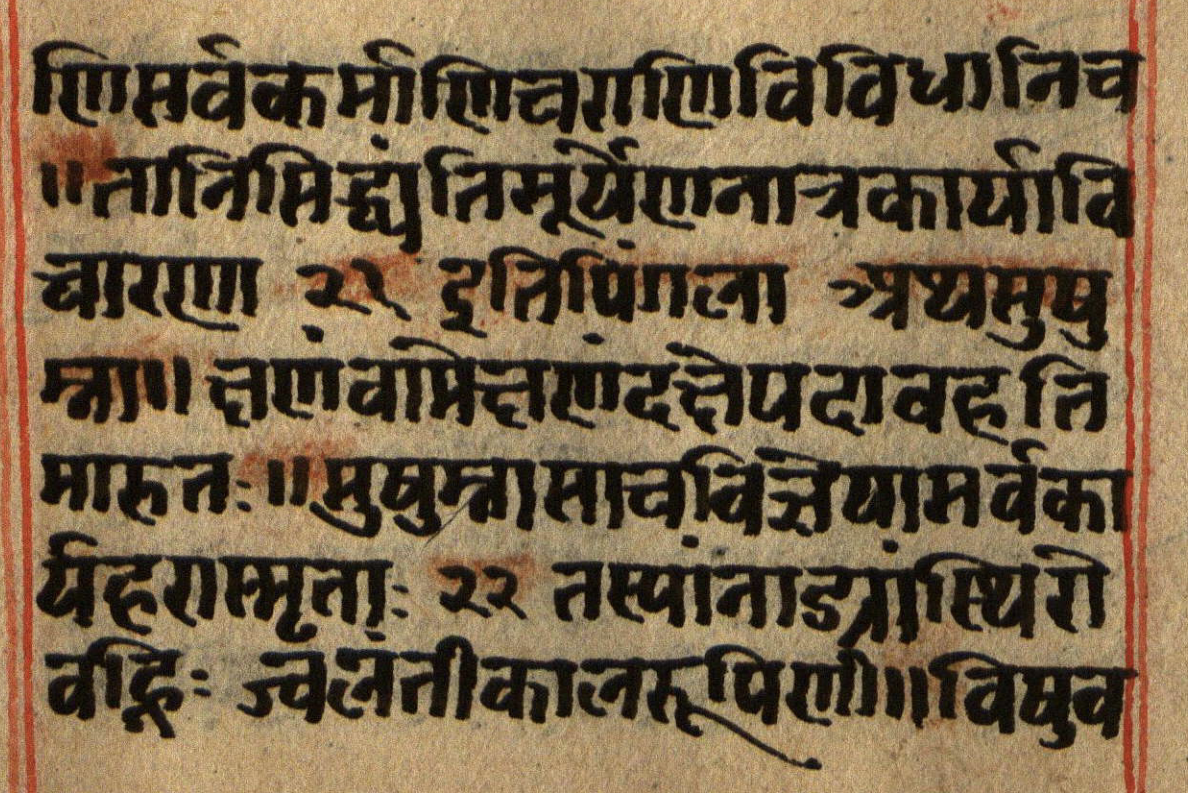 णिसर्वकर्माणिचराणिविविधानिच
॥तानिसिद्ध्यंतिसूर्येणनात्रकार्यावि
चारणा २१ इतिपिंगला अथसुषु
म्ना॥ क्षणंवामेक्षणंदक्षेयदावहति
मारुतः॥सुषुम्नासाचविज्ञेयासर्वका
र्यहरास्मृताः २२ तस्यांनाड्यांस्थितो
वह्निः ज्वलंतीकालरूपिणी॥विषुव